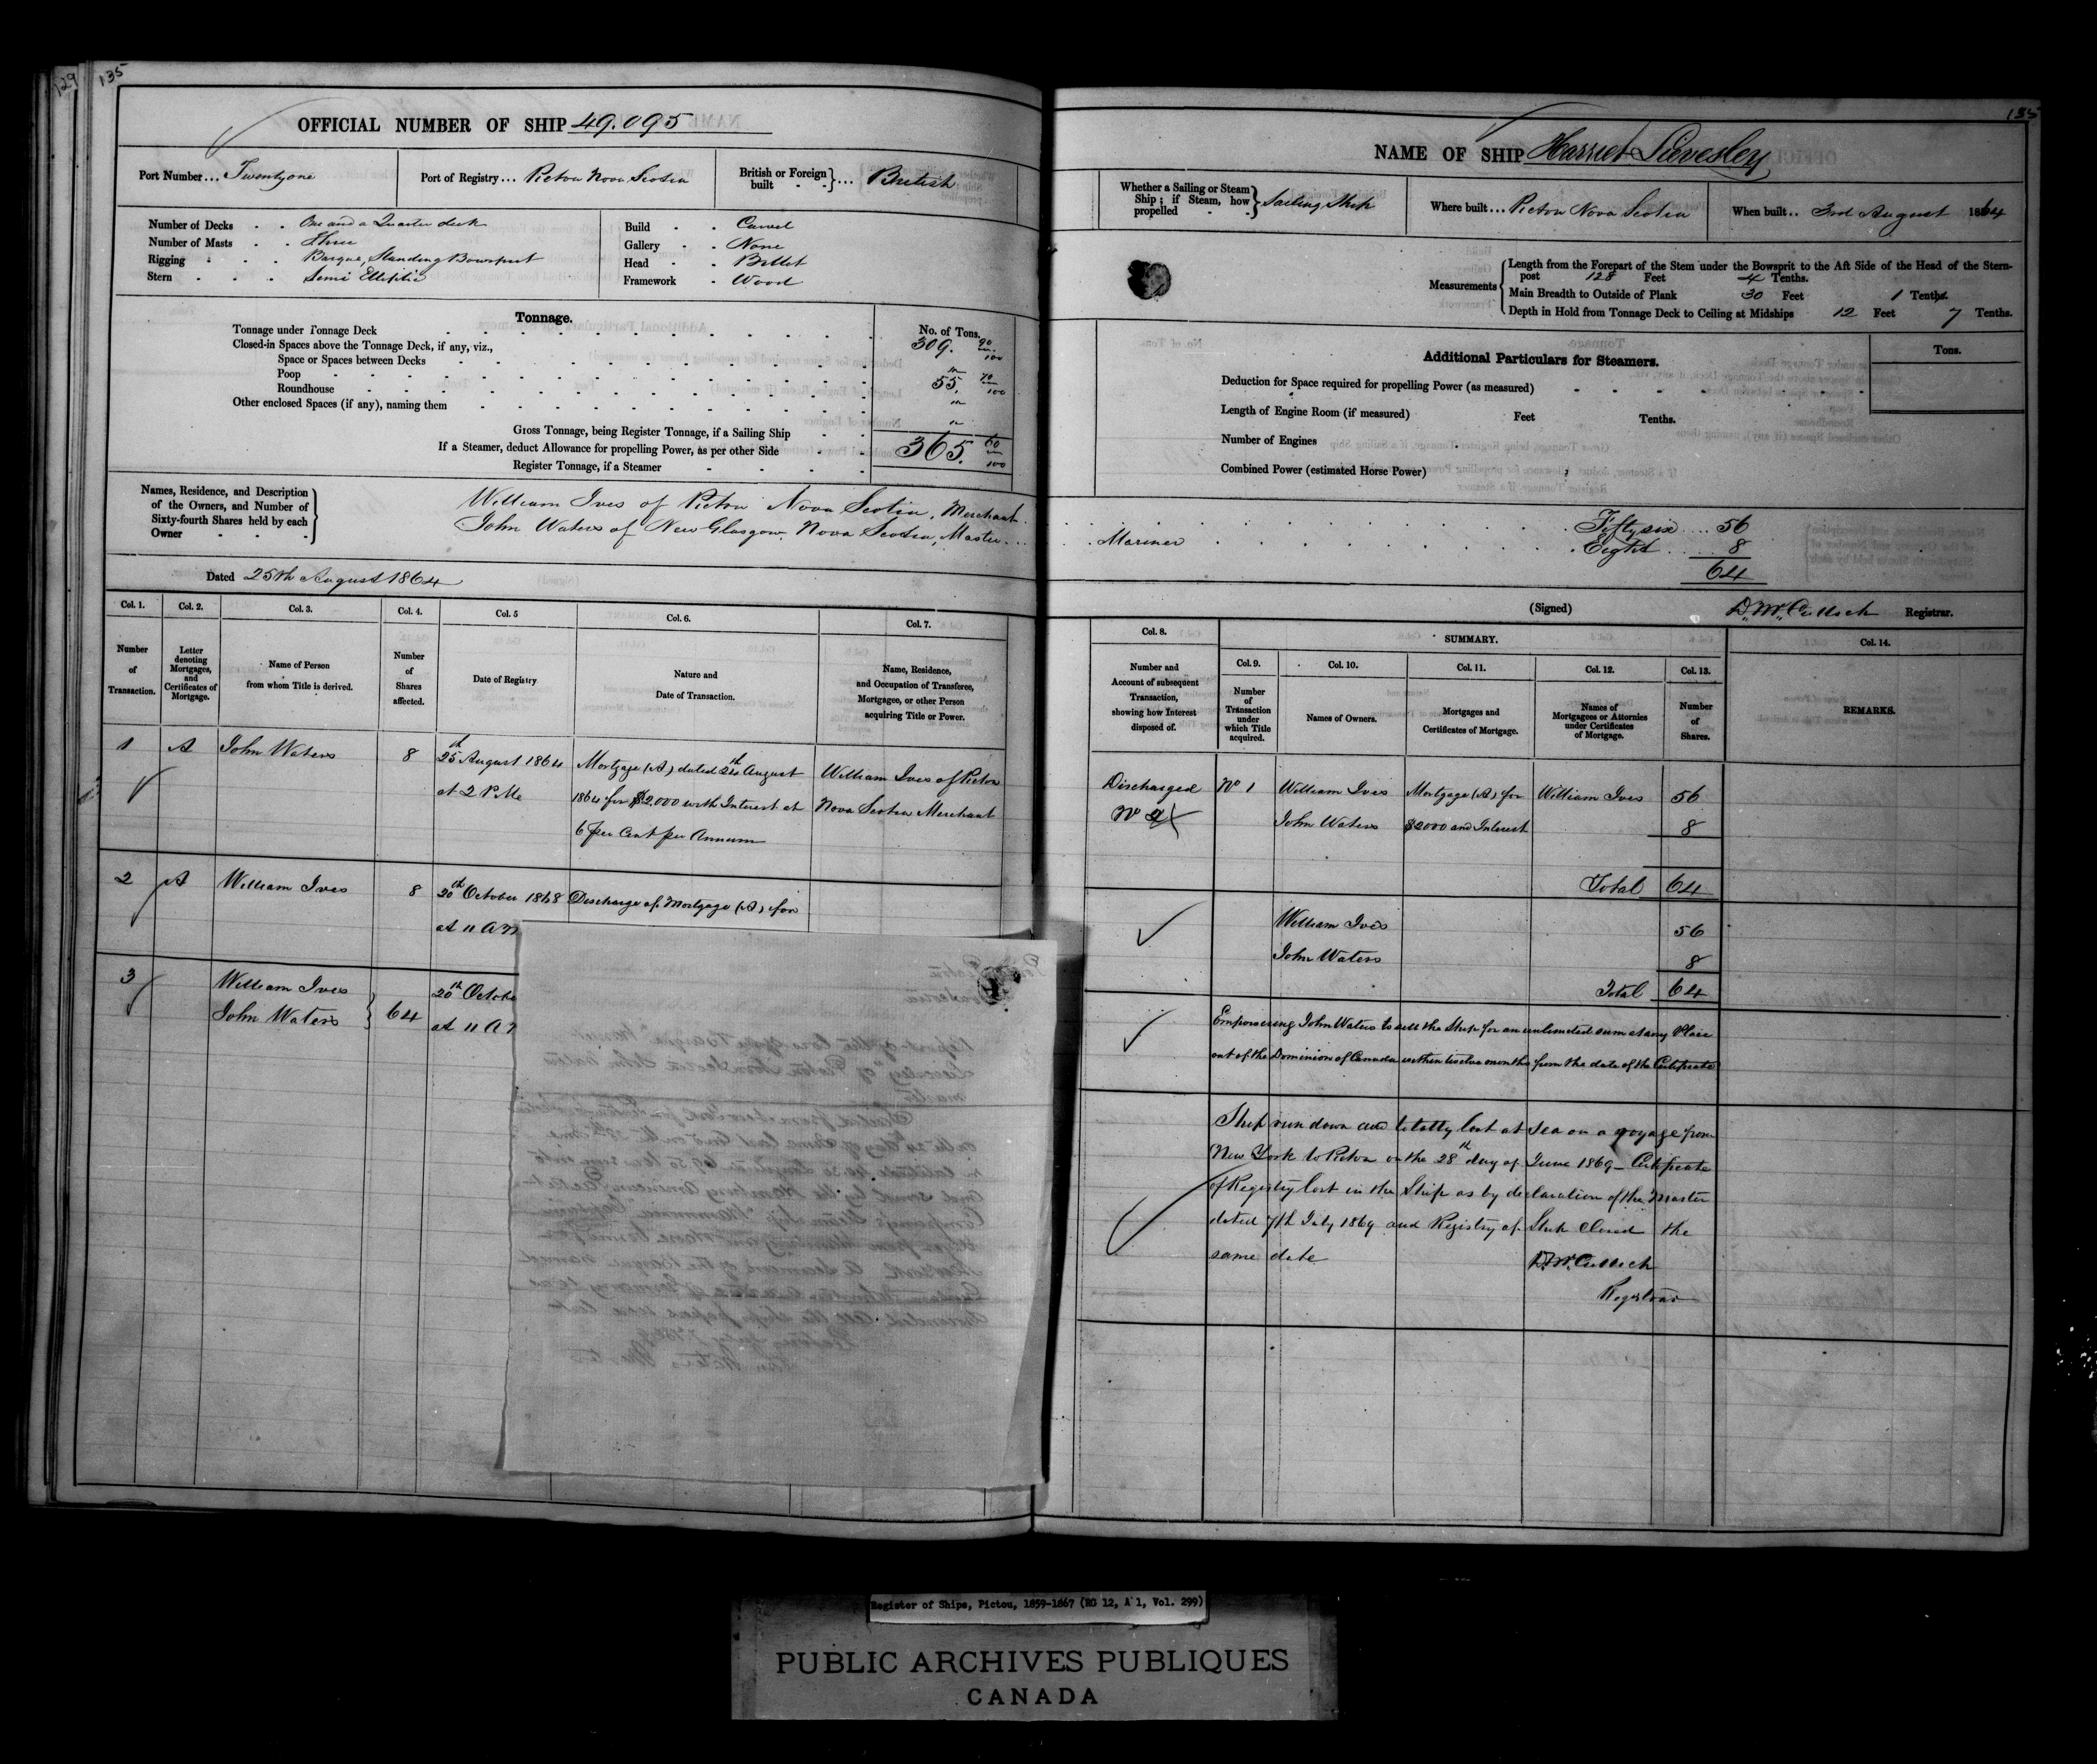 129
135
OFFICIAL NUMBER OF SHIP 49.095
Port Number... Twentyone
Port of Registry... Pictou Nova Scotia
British or Foreign built ... British
Number of Decks . . One and a Quarter deck
Number of Masts . . Three
Rigging . . . Barque, Standing Bowsprit
Stern . . . Semi Elliptic
Build . . Carvel
Gallery . . None
Head . . Billet
Framework . Wood
Tonnage.
No. of Tons.
Tonnage under Tonnage Deck 309. 90/100
Closed-in Spaces above the Tonnage Deck, if any, viz.,
Space or Spaces between Decks "
Poop 55. 70/100
Roundhouse "
Other enclosed Spaces (if any), naming them "
Gross Tonnage, being Register Tonnage, if a Sailing Ship 365. 60/100
If a Steamer, deduct Allowance for propelling Power, as per other Side
Register Tonnage, if a Steamer
Names, Residence, and Description of the Owners, and Number of Sixty-fourth Shares held by each Owner
William Ives of Pictou Nova Scotia, Merchant
John Waters of New Glasgow, Nova Scotia, Master
Dated 25th August 1864
Col. 1. Col. 2. Col. 3. Col. 4. Col. 5 Col. 6. Col. 7.
Number of Transaction.
Letter denoting Mortgages, and Certificates of Mortgage.
Name of Person from whom Title is derived.
Number of Shares affected.
Date of Registry
Nature and Date of Transaction.
Name, Residence, and Occupation of Transferee, Mortgagee, or other Person acquiring Title or Power.
1 A John Waters 8 25th August 1864 Mortgage (A) dated 24th August William Ives of Pictou
at 2 P.M. 1864 for $2,000 with Interest at Nova Scotia Merchant
6 per Cent per Annum
2 A William Ives 8 20th October 1868 Discharge of Mortgage (A) for
at 11 A M
3 William Ives
John Waters 64 20th Octobe
at 11 A M
135
NAME OF SHIP Harriet Livesley
Whether a Sailing or Steam Ship; if Steam, how propelled Sailing Ship
Where built... Pictou Nova Scotia
When built.. 3rd August 1864
Measurements
Length from the Forepart of the Stem under the Bowsprit to the Aft Side of the Head of the Stern-
post 128 Feet 4 Tenths.
Main Breadth to Outside of Plank 30 Feet 1 Tenths.
Depth in Hold from Tonnage Deck to Ceiling at Midships 12 Feet 7 Tenths.
Additional Particulars for Steamers.
Tons.
Deduction for Space required for propelling Power (as measured)
Length of Engine Room (if measured) Feet Tenths.
Number of Engines
Combined Power (estimated Horse Power)
Fifty six ... 56
Mariner Eight ... 8
64
(Signed) D. McCulloch Registrar.
Col. 8. SUMMARY. Col. 14.
Col. 9. Col. 10. Col. 11. Col. 12. Col. 13.
Number and Account of subsequent Transaction, showing how Interest disposed of.
Number of Transaction under which Title acquired.
Names of Owners.
Mortgages and Certificates of Mortgage.
Names of Mortgagees or Attornies under Certificates of Mortgage.
Number of Shares.
REMARKS.
Discharged No 1 William Ives Mortgage (A) for William Ives 56
No 2 John Waters $2000 and Interest 8
Total 64
William Ives 56
John Waters 8
Total 64
Empowering John Waters to sell the Ship for an unlimited sum at any Place
out of the Dominion of Canada within twelve months from the date of the Certificate
Ship run down and totally lost at Sea on a voyage from
New York to Pictou on the 28th day of June 1869 - Certificate
of Registry lost in the Ship as by declaration of the Master
dated 7th July 1869 and Registry of Ship closed the
same date D. McCulloch
Registrar
Register of Ships, Pictou, 1859-1867 (RG 12, A 1, Vol. 299)
PUBLIC ARCHIVES PUBLIQUES
CANADA